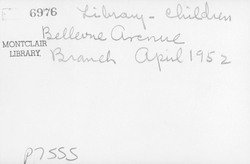 6976 Library - Children
Bellevue Avenue
MONTCLAIR
LIBRARY.
Branch April 1952
p7555